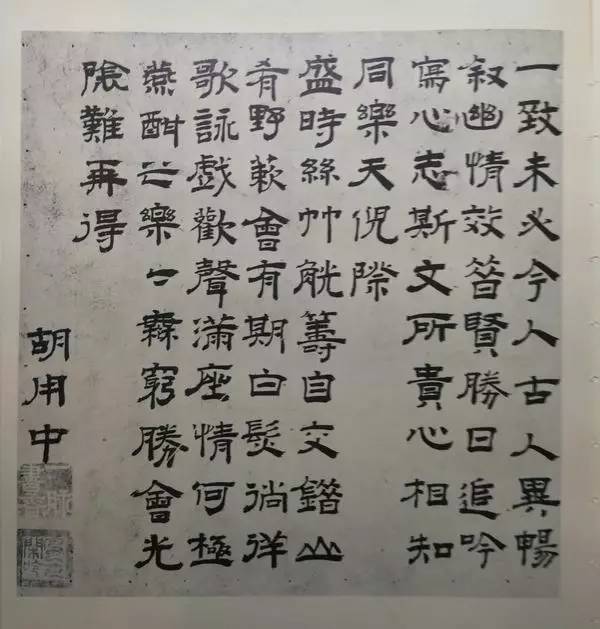 一致未必今人古人異暢
叙幽情效昔賢勝日追吟
寫心志斯文所貴心相知
同樂天倪際
盛時絲竹觥籌自交錯山
肴野蔌會有期白髮徜徉
歌詠戲歡聲滿座情何極
燕酣之樂樂無窮勝會光
陰難再得
胡用中